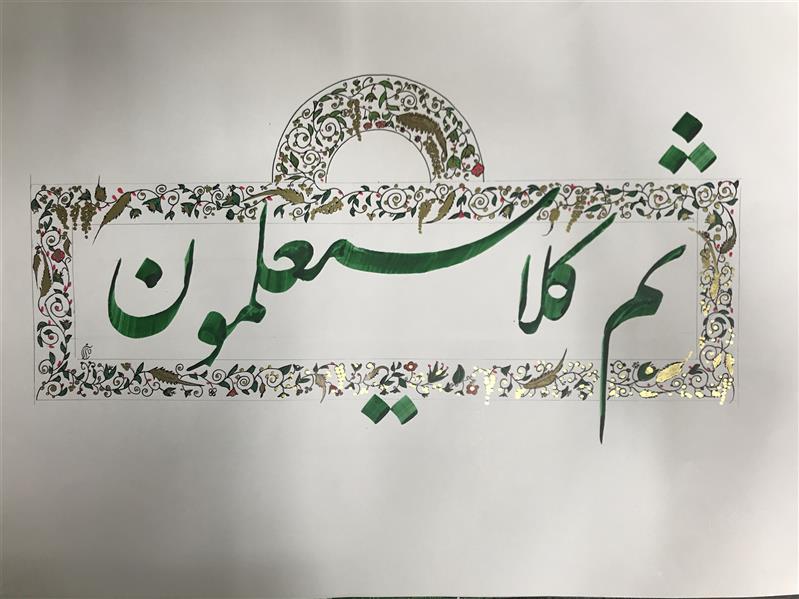 ثم کلا سیعلمون